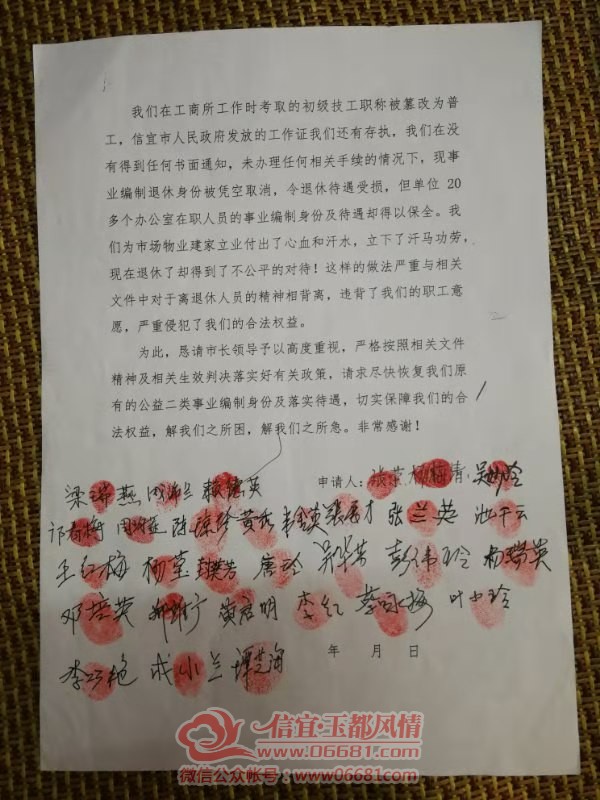 我们在工商所工作时考取的初级技工职称被篡改为普
工，信宜市人民政府发放的工作证我们还有存执，我们在没
有得到任何书面通知，未办理任何相关手续的情况下，现事
业编制退休身份被凭空取消，令退休待遇受损，但单位 20
多个办公室在职人员的事业编制身份及待遇却得以保全。我
们为市场物业建家立业付出了心血和汗水，立下了汗马功劳，
现在退休了却得到了不公平的对待！这样的做法严重与相关
文件中对于离退休人员的精神相背离，违背了我们的职工意
愿，严重侵犯了我们的合法权益。
为此，恳请市长领导予以高度重视，严格按照相关文件
精神及相关生效判决落实好有关政策，请求尽快恢复我们原
有的公益二类事业编制身份及落实待遇，切实保障我们的合
法权益，解我们之所困，解我们之所急。非常感谢！
申请人：
梁瑞燕
张兰英
王红梅 杨莹 唐玲 杨瑞英
邓萍英 黄启明 李红 叶小玲
李巧艳 成小兰
年 月 日
信宜·玉都风情
www.06681.com
微信公众帐号：www06681com